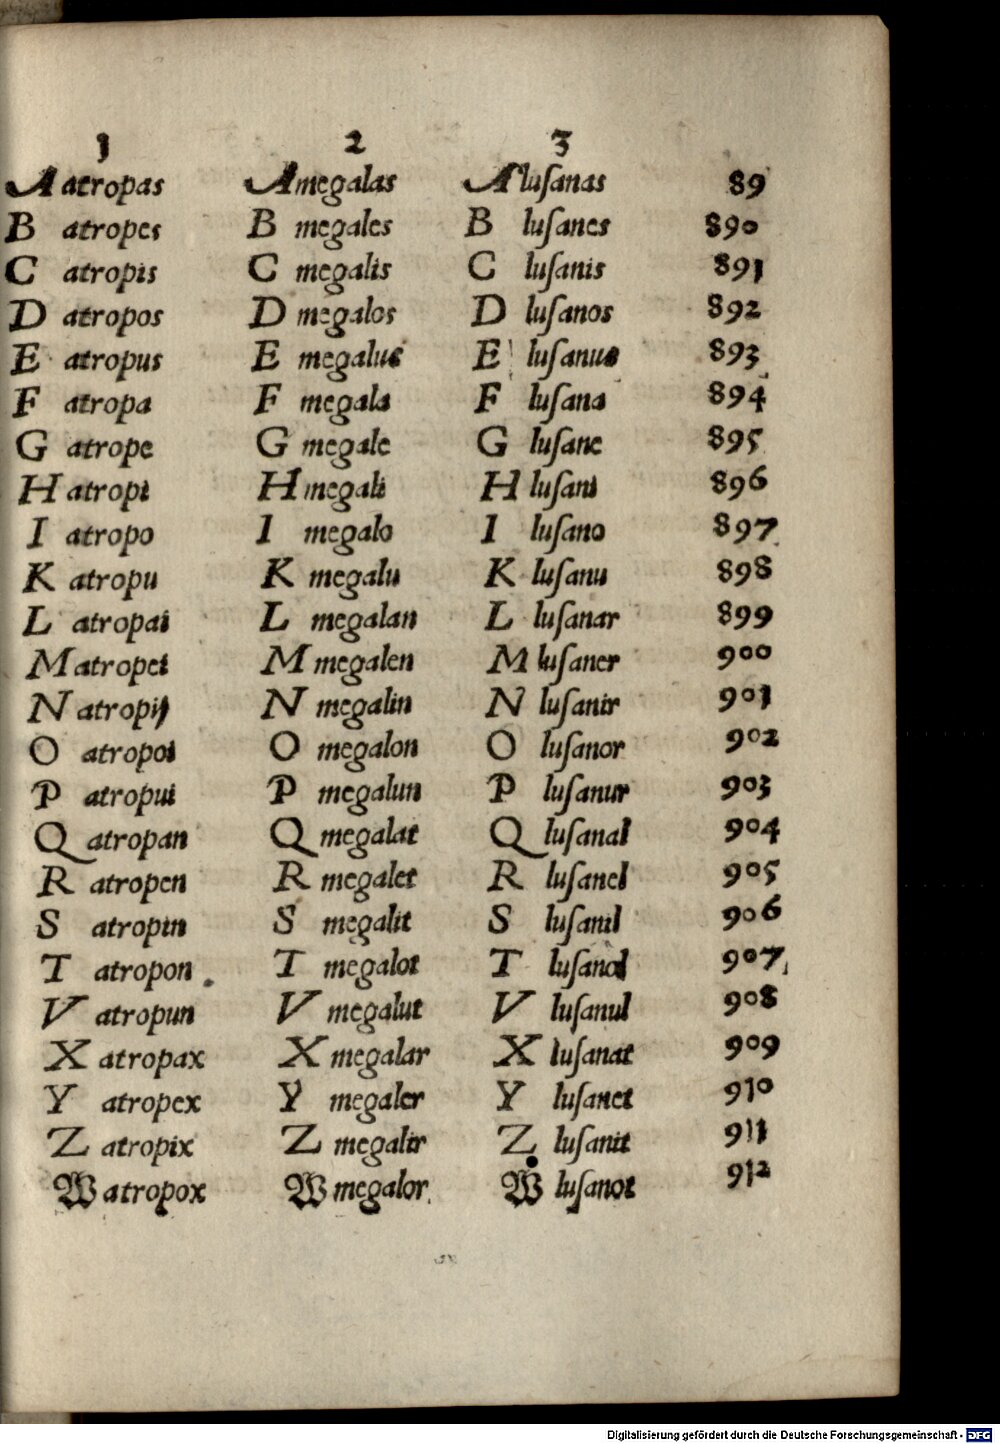 1 2 3
A atropas A megalas A luſanas 89
B atropes B megales B luſanes 890
C atropis C megalis C luſanis 891
D atropos D megalos D luſanos 892
E atropus E megalus E luſanus 893
F atropa F megala F luſana 894
G atrope G megale G luſane 895
H atropi H megali H luſani 896
I atropo I megalo I luſano 897
K atropu K megalu K luſanu 898
L atropai L megalan L luſanar 899
M atropei M megalen M luſaner 900
N atropij N megalin N luſanir 901
O atropoi O megalon O luſanor 902
P atropui P megalun P luſanur 903
Q atropan Q megalat Q luſanal 904
R atropen R megalet R luſanel 905
S atropin S megalit S luſanil 906
T atropon T megalot T luſanol 907
V atropun V megalut V luſanul 908
X atropax X megalar X luſanat 909
Y atropex Y megaler Y luſanet 910
Z atropix Z megalir Z luſanit 911
W atropox W megalor W luſanot 912
Digitalisierung gefördert durch die Deutsche Forschungsgemeinschaft - DFG